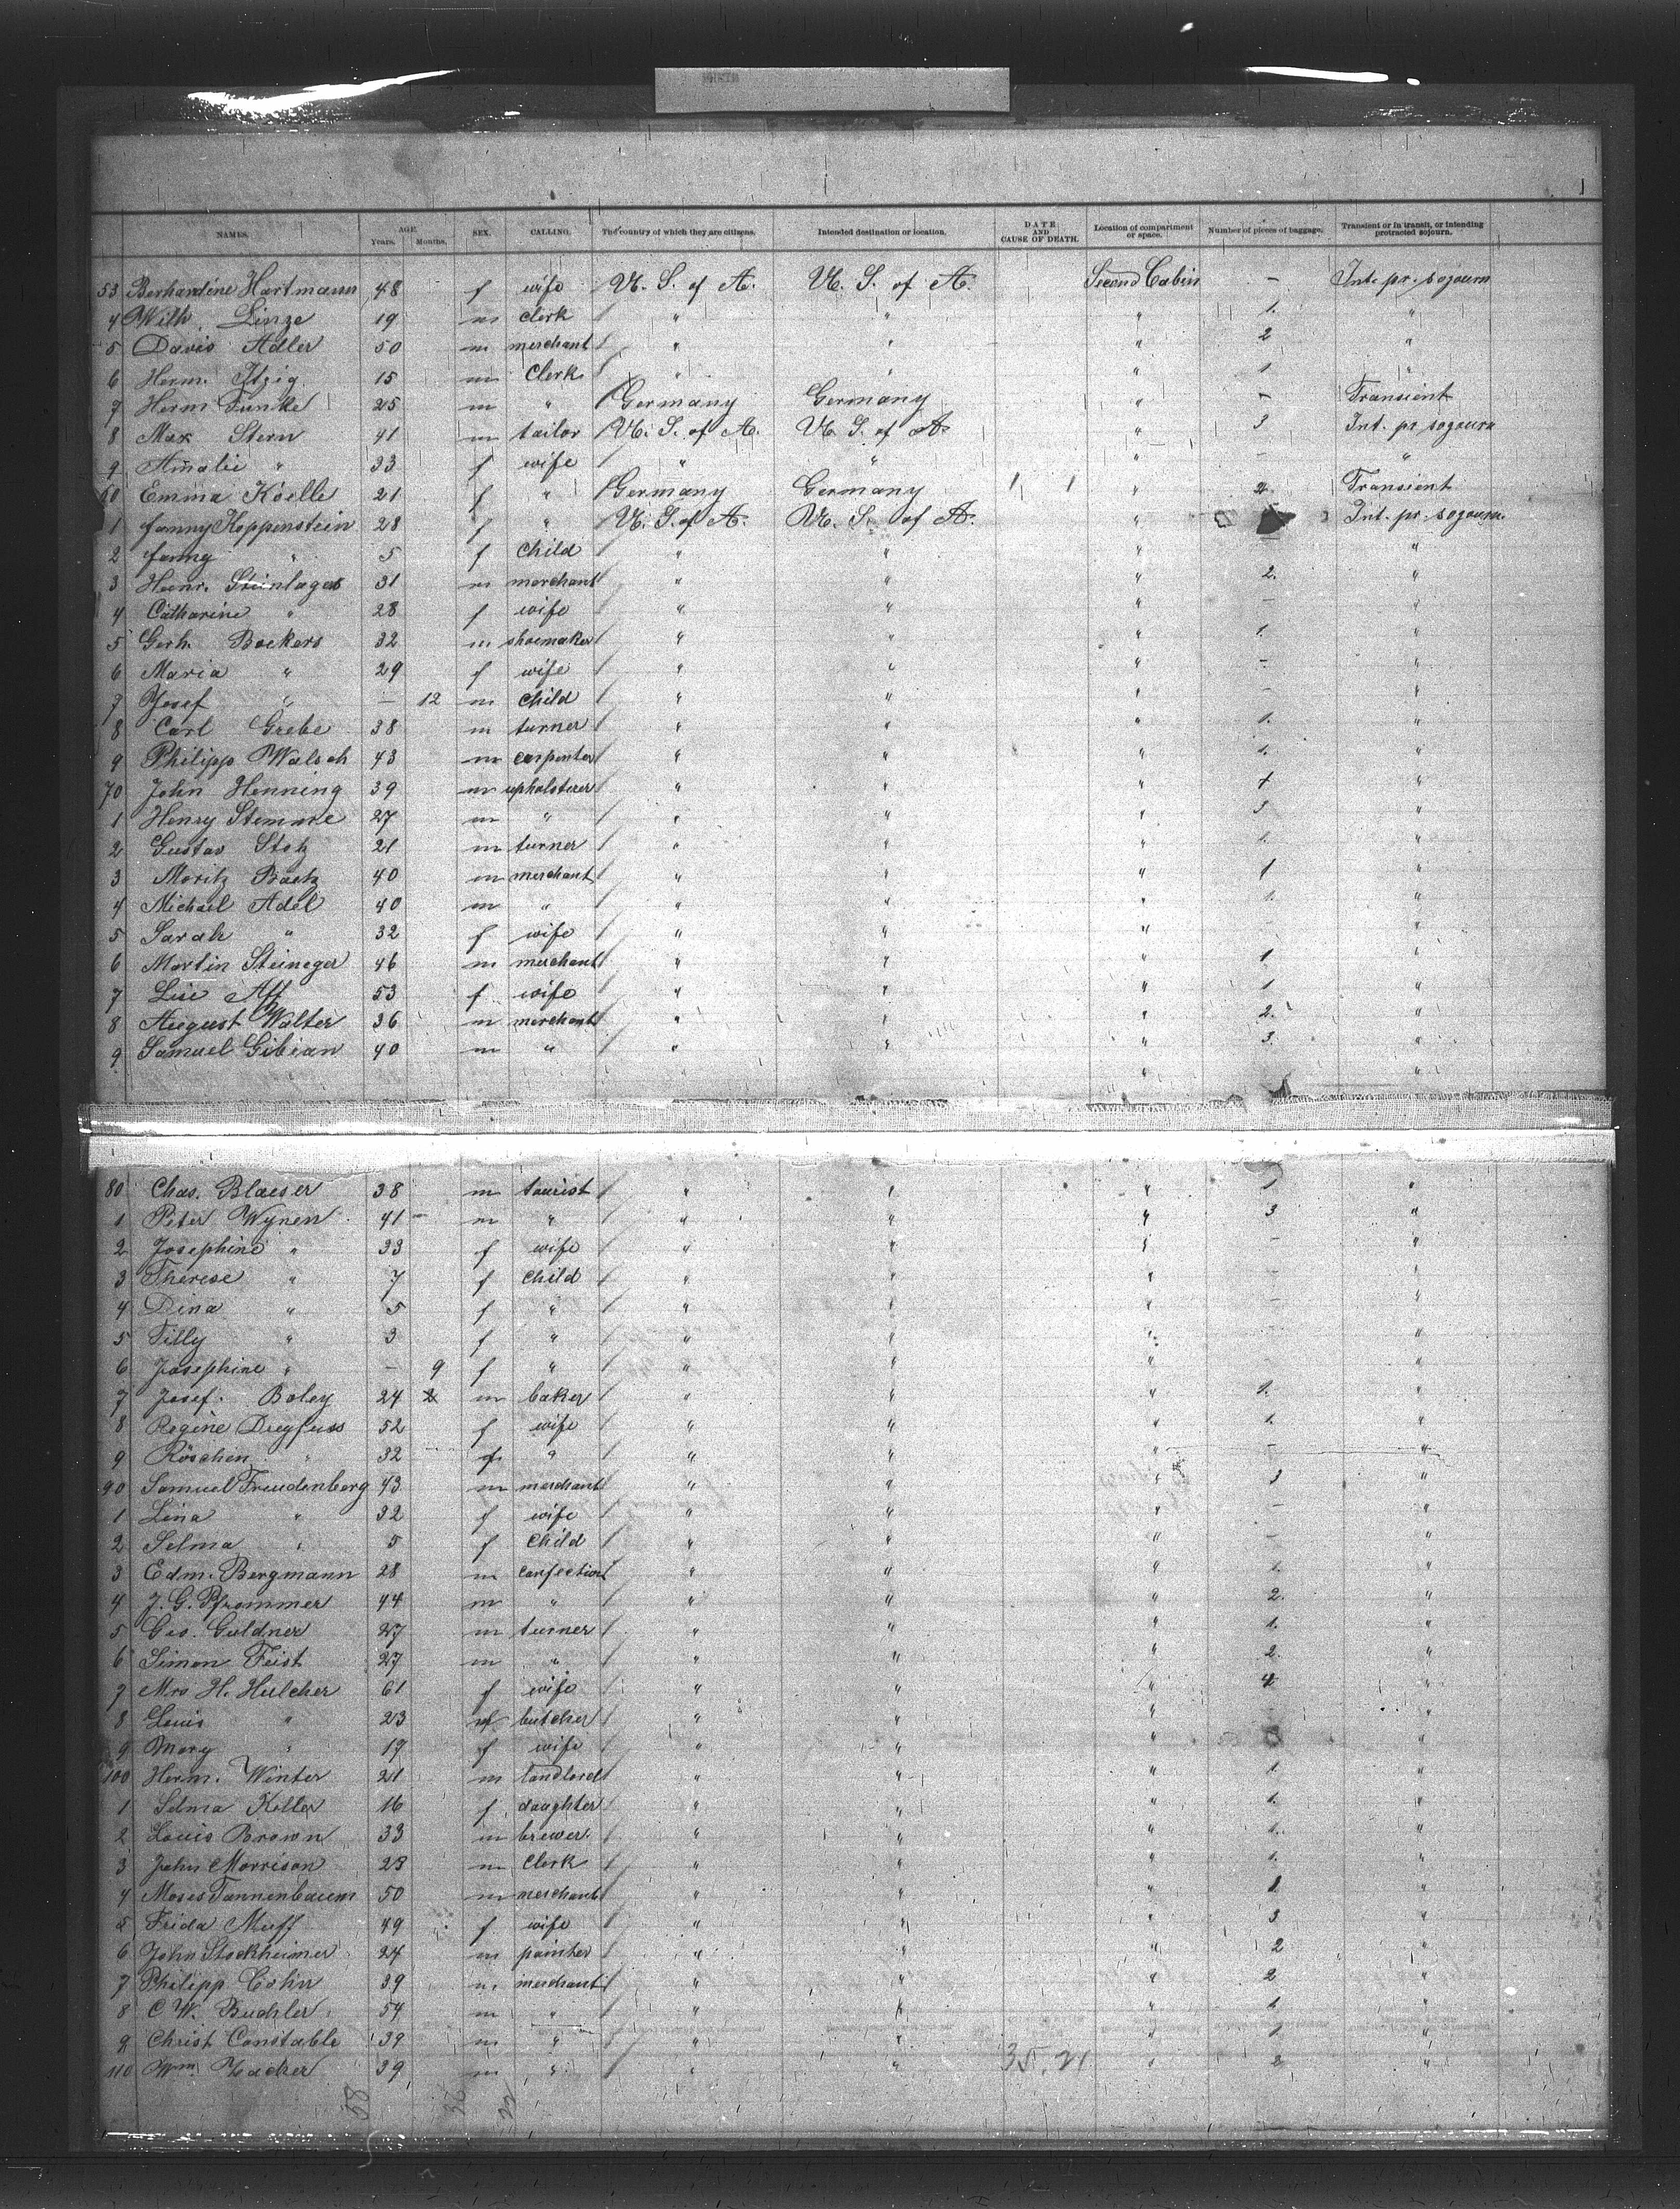 NAMES. AGE Years. Months. SEX. CALLING. The country of which they are citizens. Intended destination or location. DATE AND CAUSE OF DEATH. Location of compartment or space. Number of pieces of baggage. Transient or in transit, or intending protracted sojourn.
53 Berhardine Hartmann 48 f wife U. S. of A. U. S. of A. Second Cabin - Int. pr. sojourn
4 Wilh. Linze 19 m clerk " " " 1. "
5 Davis Adler 50 m merchant " " " 2 "
6 Herm. Itzig 15 m Clerk " " " 1 "
7 Herm. Funke 25 m " Germany Germany " - Transient
8 Max Stern 41 m tailor U. S. of A. U. S. of A. " 3 Int. pr sojourn
9 Amalie " 33 f wife " " " - "
60 Emma Köelle 21 f " Germany Germany " 2. Transient
1 fanny Koppenstein 28 f " U. S. of A. U. S. of A. " Int. pr. sojourn.
2 fanny " 5 f Child " " " "
3 Heinr. Steinlages 31 m merchant " " " 2. "
4 Catharine " 28 f wife " " " - "
5 Gerh. Beckers 32 m shoemaker " " " 1. "
6 Maria " 29 f wife " " " - "
7 Josef " - 12 m Child " " " - "
8 Carl Grebe 38 m turner " " " 1. "
9 Philipp Walsch 43 m carpenter " " " 1. "
70 John Henning 39 m upholsterer " " " "
1 Henry Stemme 27 m " " " " 3 "
2 Gustav Stolz 21 m turner " " " 1. "
3 Moritz 40 m merchant " " " 1 "
4 Michael Adel 40 m " " " " 1. "
5 Sarah " 32 f wife " " " "
6 Martin Steineger 46 m merchant " " " 1 "
7 Lise Aff 53 f wife " " " 1 "
8 August Walter 36 m merchant " " " 2. "
9 Samuel Gibian 40 m " " " " 3. "
" "
80 Chas. Blaeser 38 m tourist " " " 1 "
1 Peter Wynen 41 - m " " " " 3 "
2 Josephine " 33 f wife " " " - "
3 Therese " 7 f Child " " " - "
4 Dina " 5 f " " " " - "
5 Tilly " 3 f " " " " "
6 Josephine " - 9 f " " " " - "
7 Josef. Boley 24 m baker " " " 1. "
8 Regine Dreyfuss 52 f wife " " " 1. "
9 Röschen " 32 f " " " " - "
90 Samuel Freudenberg 43 m merchant " " " 3 "
1 Lina " 32 f wife " " " - "
2 Selma " 5 f Child " " " - "
3 Edm. Bergmann 28 m confection " " " 1. "
4 J. G. Pfrommer 44 m " " " " 2. "
5 Geo. Guldner 27 m turner " " " 1. "
6 Simon Feist 27 m " " " " 2. "
7 Mrs H. Hulcher 61 f wife " " " 4 "
8 Louis " 23 m butcher " " " - "
9 Mary " 19 f wife " " " "
100 Herm. Winter 21 m landlord " " " 1. "
1 Selma Keller 16 f daughter " " " 1. "
2 Louis Brown 33 m brewer. " " " 1. "
3 John Morrison 23 m Clerk " " " 1. "
4 Moses Tannenbaum 50 m merchant " " " 1. "
5 Frida Muff 49 f wife " " " 3 "
6 John Stockheimer 24 m painter " " " 2 "
7 Philipp Cohn 39 m merchant " " " 2 "
8 C. W. Buehler 54 m " " " " 1. "
9 Christ Constable 39 m " " " " 1. "
110 Wm. Hacker 39 m " " " 35. 21 " 2 "
58 36 22